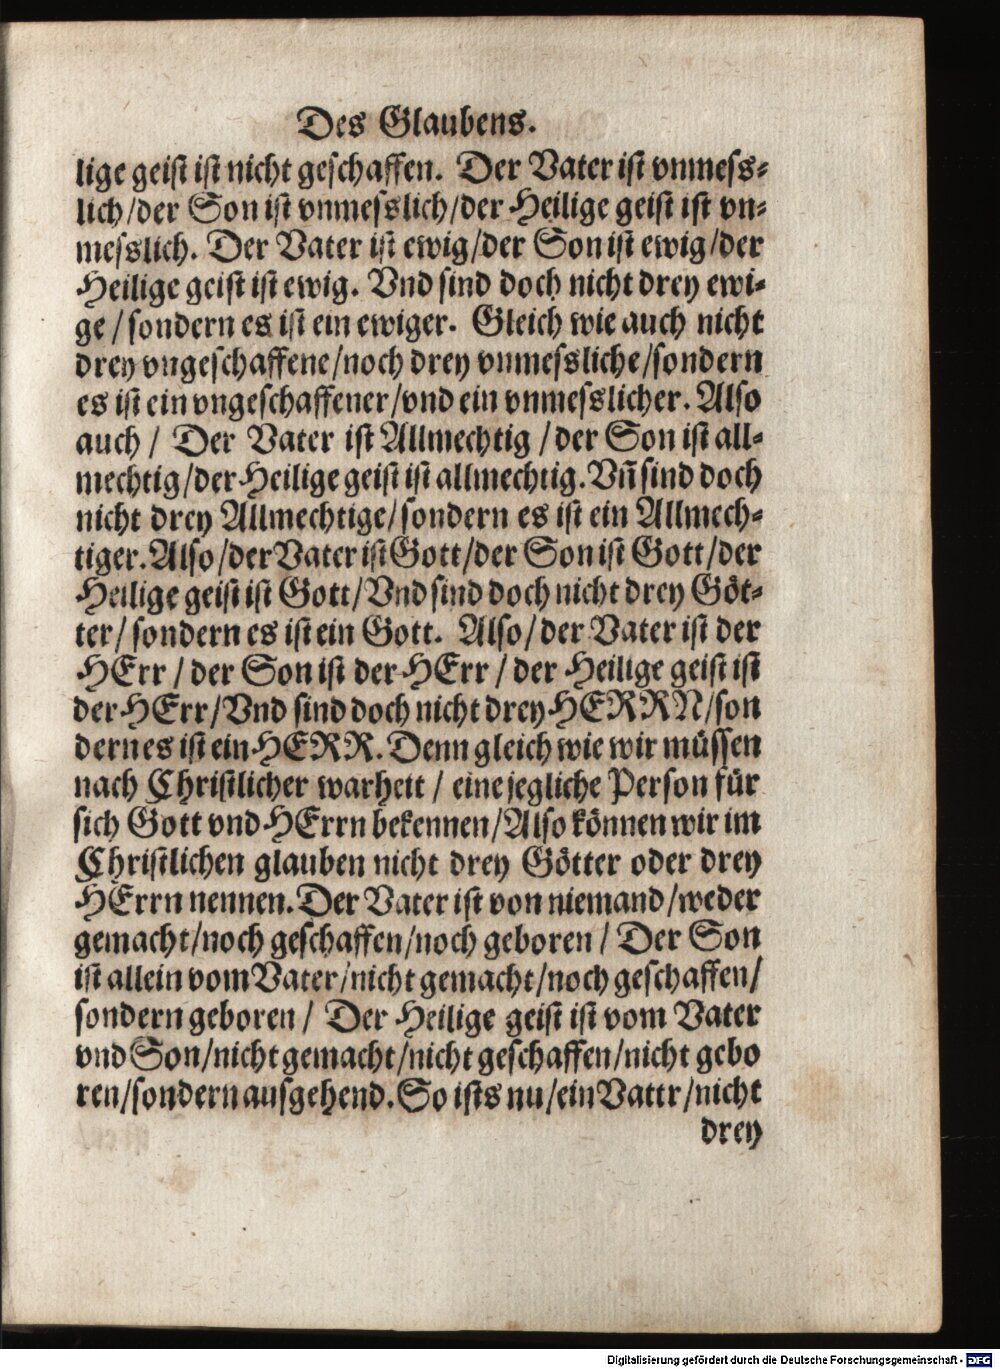 Des Glaubens.
lige geist ist nicht geschaffen. Der Vater ist vnmess-
lich/der Son ist vnmesslich/der Heilige geist ist vn-
messlich. Der Vater ist ewig/der Son ist ewig/der
Heilige geist ist ewig. Vnd sind doch nicht drey ewi-
ge/sondern es ist ein ewiger. Gleich wie auch nicht
drey vngeschaffene/noch drey vnmessliche/sondern
es ist ein vngeschaffener/vnd ein vnmesslicher. Also
auch/ Der Vater ist Allmechtig/der Son ist all-
mechtig/der Heilige geist ist allmechtig. Vn̄ sind doch
nicht drey Allmechtige/sondern es ist ein Allmech-
tiger. Also/der Vater ist Gott/der Son ist Gott/der
Heilige geist ist Gott/Vnd sind doch nicht drey Göt-
ter/sondern es ist ein Gott. Also/der Vater ist der
HErr/der Son ist der HErr/der Heilige geist ist
der HErr/Vnd sind doch nicht drey HERRN/son
dern es ist ein HERR. Denn gleich wie wir müssen
nach Christlicher warheit/eine jegliche Person für
sich Gott vnd HErrn bekennen/Also können wir im
Christlichen glauben nicht drey Götter oder drey
HErrn nennen. Der Vater ist von niemand/weder
gemacht/noch geschaffen/noch geboren/ Der Son
ist allein vom Vater/nicht gemacht/noch geschaffen/
sondern geboren/ Der Heilige geist ist vom Vater
vnd Son/nicht gemacht/nicht geschaffen/nicht gebo
ren/sondern ausgehend. So ists nu/ein Vattr/nicht
drey
Digitalisierung gefördert durch die Deutsche Forschungsgemeinschaft - DFG